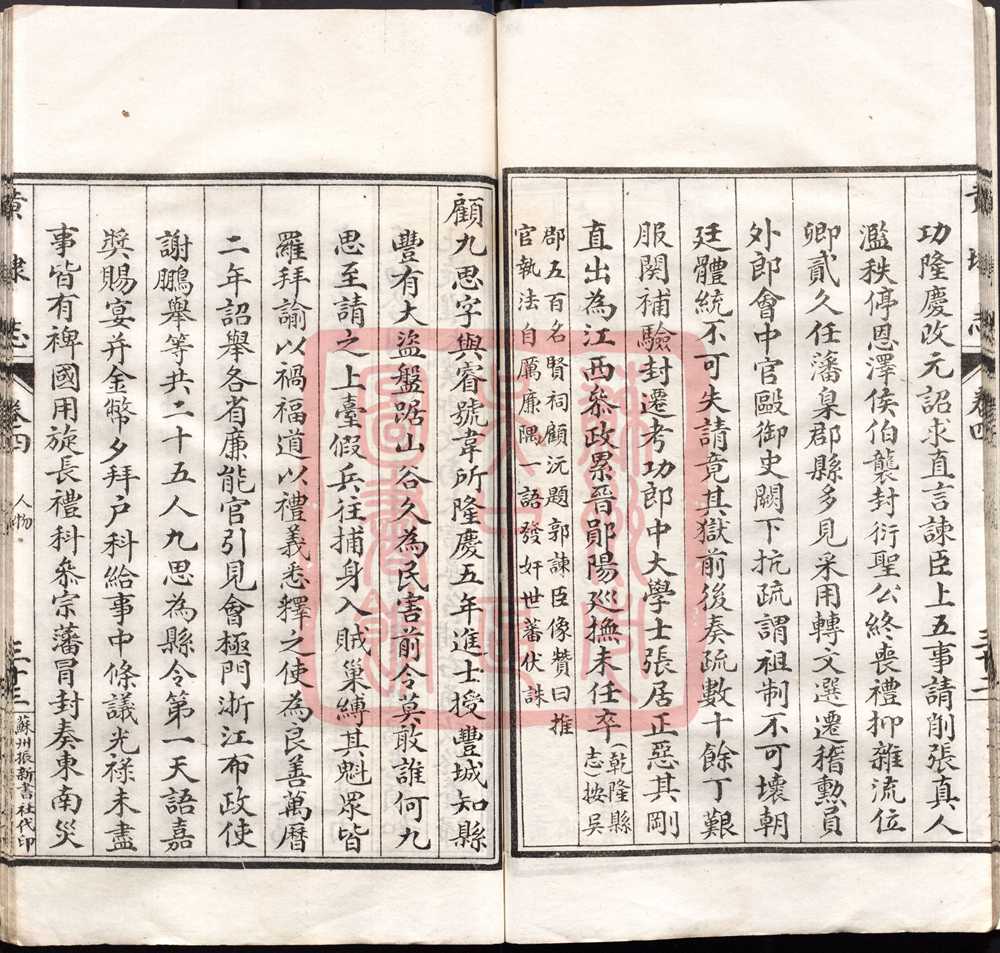 功隆慶改元詔求直言諫臣上五事請削張真人
濫秩停恩澤侯伯襲封衍聖公終喪禮抑雜流位
卿貳久任藩臬郡縣多見采用轉文選遷稽勲員
外郎會中官毆御史闕下抗疏謂祖制不可壞朝
廷體統不可失請竟其獄前後奏疏數十餘丁艱
服闋補驗封遷考功郎中大學士張居正惡其剛
直出為江西叅政累晉鄖陽廵撫未任卒
(乾隆縣
志)按吳
郡五百名賢祠顧沅題郭諫臣像贊曰推
官執法自厲廉隅一語發奸世蕃伏誅
顧九思字與睿號韋所隆慶五年進士授豐城知縣
豐有大盜盤踞山谷久為民害前令莫敢誰何九
思至請之上臺假兵往捕身入賊巢縛其魁眾皆
羅拜諭以禍福道以禮義悉釋之使為良善萬曆
二年詔舉各省廉能官引見會極門浙江布政使
謝鵬舉等共二十五人九思為縣令第一天語嘉
獎賜宴并金幣夕拜户科給事中條議光祿未盡
事皆有裨國用旋長禮科叅宗藩冒封奏東南災
志
卷四
人物
三十三
蘇州振新書社代印